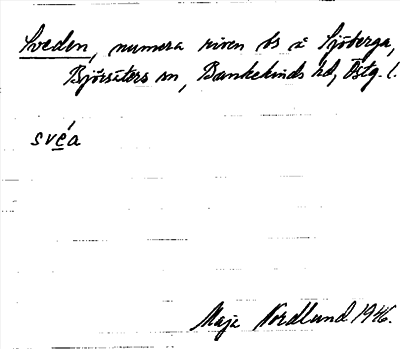 Sveden, numera riven bs i Sjöberga,
Björsäters sn, Bankekinds hd, Östg. l.
svéa
Maja Nordlund 1946.